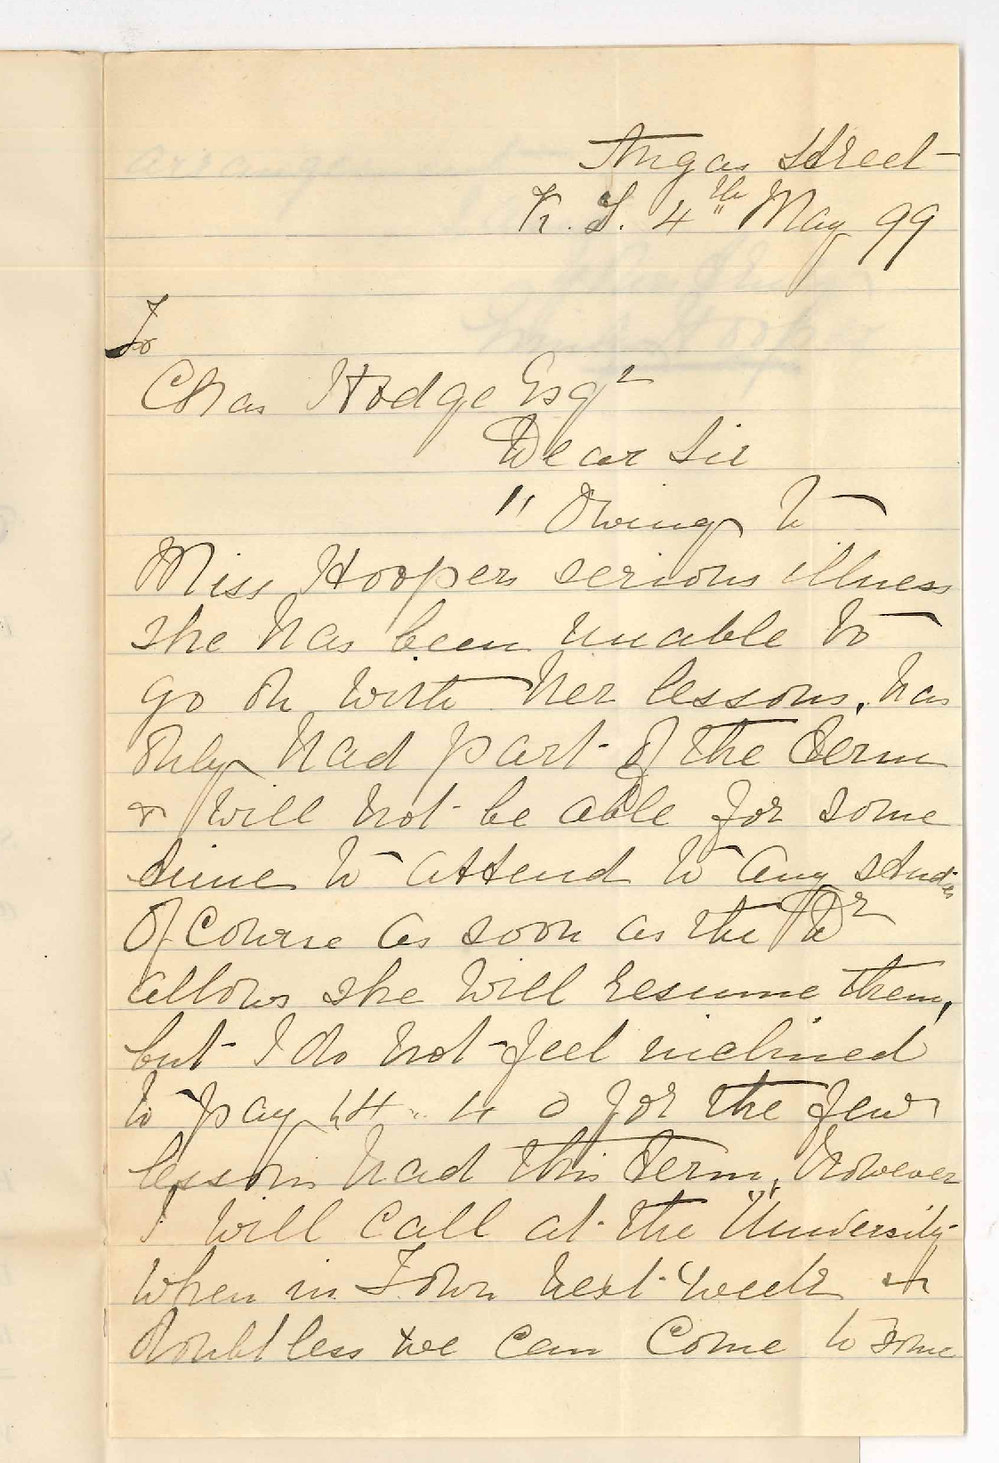 Angas Street
K. T. 4th May 99
To
Chas Hodge Esqr
Dear Sir
" Owing to
Miss Hoopers serious illness
she has been unable to
go on with her lessons, has
only had part of the term
& will not be able for some
time to attend to any studies
Of course as soon as the Dr
allows she will resume them,
but I do not feel inclined
to pay £4 " 4 0 for the few
lessons had this term, however
I will call at the "University"
when in Town next week &
doubtless we can come to some